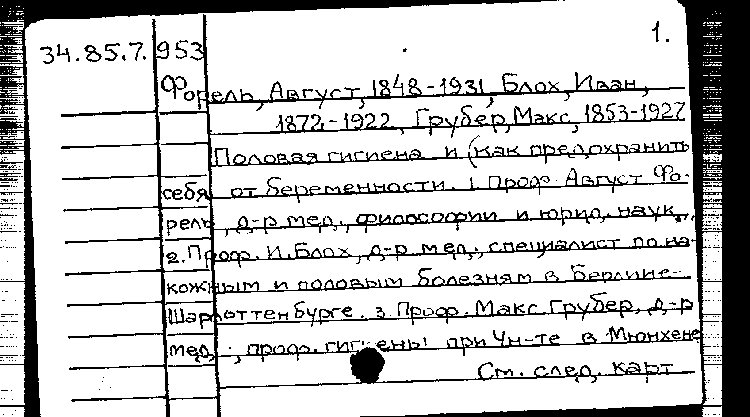 1.
34.85.7.953
Форель, Август, 1848-1931, Блох, Иван,
1872-1922, Грубер, Макс, 1853-1927
Половая гигиена и (как предохранить
себя от беременности. 1 Проф. Август Фо-
рель, д-р мед., философии и юрид. наук.,
2. Проф. И. Блох, д-р мед., специалист по на-
кожным и половым болезням в Берлине-
Шарлоттенбурге. 3 Проф. Макс Грубер, д-р
мед., проф. гигиены при Ун-те в Мюнхене
См. след. карт